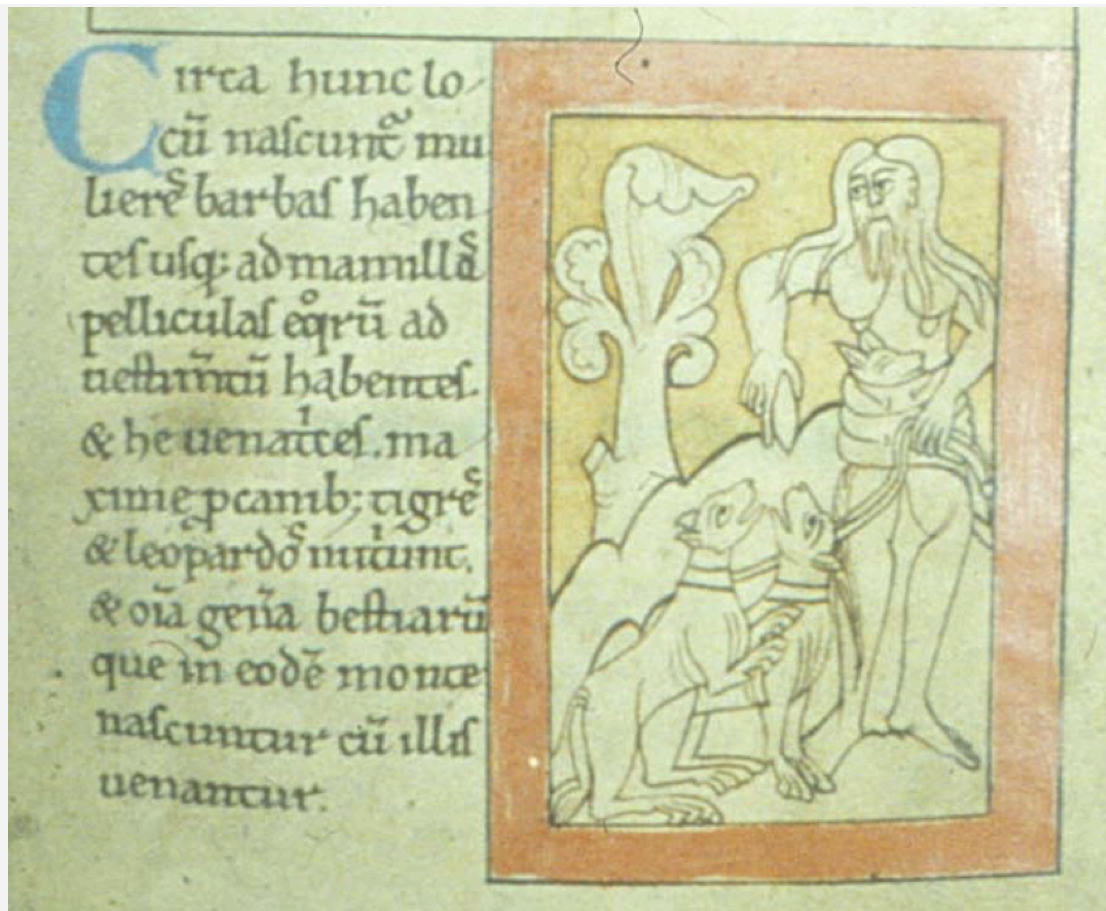 Circa hunc lo
cū naſcunt᷑ mu
liereˢ barbaſ haben
teſ uſq; ad mamillaˢ
pelliculaſ eqͦrū ad
ueſtim̄tū habenteſ.
& he uenatⁱceſ. ma
xime p canib; tigreˢ
& leopardoˢ nutⁱunt,
& oīa gen̄a beſtiarū
que in eodē monte
naſcuntur cū illiſ
uenantur.